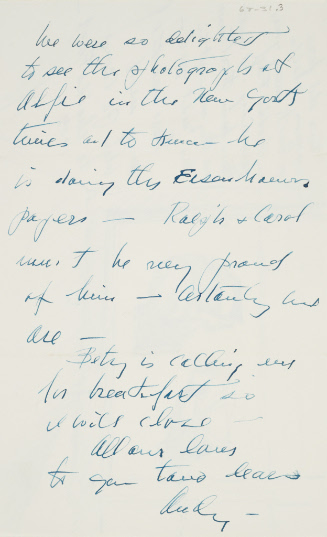 We were so delighted
to see the photographs of
Alfie in the New York
times and to know he
is doing the Eisenhower
papers — Ralph & Carol
must be very proud
of him — certainly we
are —
Betsy is calling me
for breakfast so
I will close —
All our love
to you two dears
Andy —